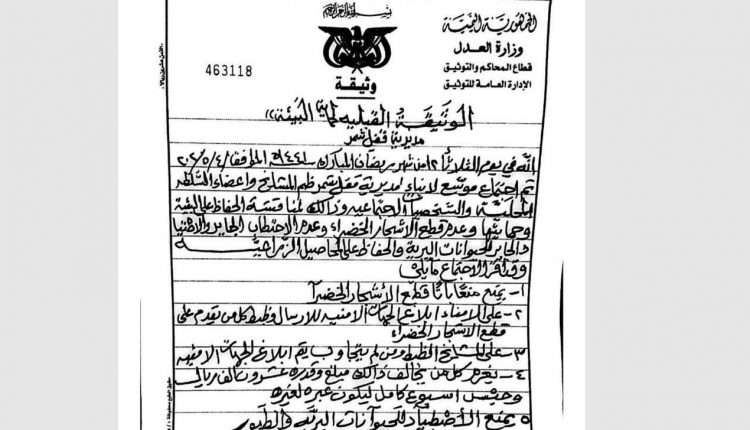 بسم الله الرحمن الرحيم
الجمهورية اليمنية
وزارة العدل
قطاع المحاكم والتوثيق
الإدارة العامة للتوثيق
463118
وثيقة
الوثيقة القبلية لحماية البيئة
مديرية قفل شمر
انه في يوم الثلاثاء ١٢ من شهر رمضان المبارك ١٤٤١هـ الموافق ٢٠٢٠/٥/٤
تم اجتماع موسع لابناء مديرية قفل شمر ظم المشايخ واعضاء السلطه
المحلية والشخصيات الاجتماعيه وذالك لمناقشة الحفاظ على البيئة
وحمايتها وعدم قطع الاشجار الخضراء وعدم الاحتطاب الجاير والاصطياد
الجاير للحيوانات البرية والحفاظ على المحاصيل الزراعية
وقد اقر الاجتماع مايلي
١- يمنع منعاً باتاً قطع الأشجار الخضراء
٢- على الامناء ابلاغ الجهات الامنيه للارسال وظبط كل من يقدم على
قطع الاشجار الخضراء
٣- على المشايخ الظبط ومن لم يتجاوب يتم ابلاغ الجهات الامنيه
٤- يغرم كل من يخالف ذالك مبلغ وقدره عشرون الف ريال
وحبس اسبوع كامل ليكون عبره لغيره
٥ يمنع الأصطياد للحيوانات البريه والطيور